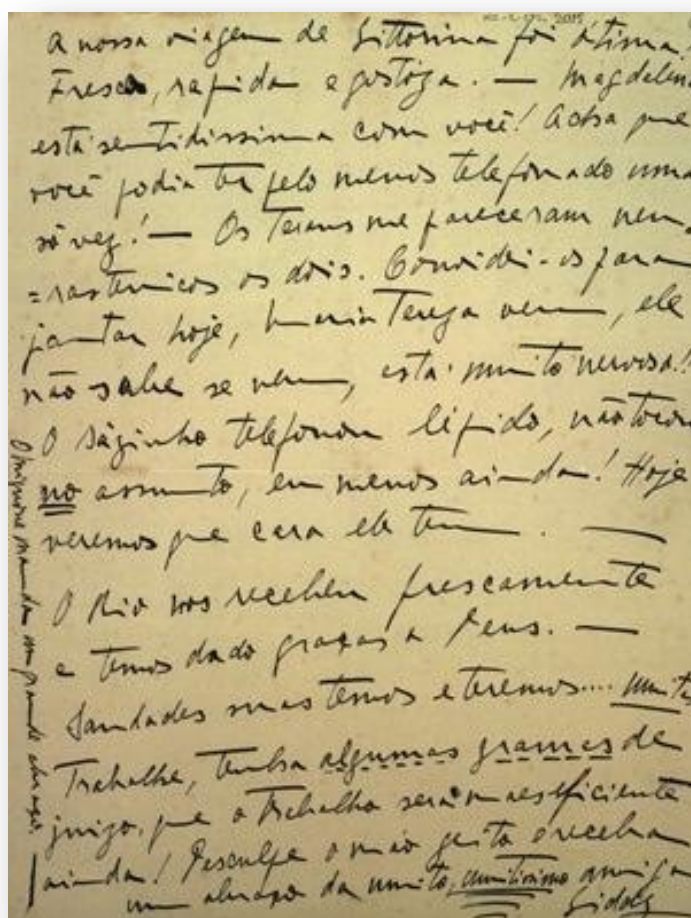 2015
A nossa viagem de Littorina foi ótima.
Fresca, rapida e gostoza. — Magdalena
está sentidissima com você! Acha que
você podia ter pelo menos telefonado uma
só vez! — Os me pareceram neu-
=rastenicos os dois. Convidei-os para
jantar hoje, Maria Tereza vem, ele
não sabe se vem, está muito nervoso!!
O telefonou lépido, não tocou
no assunto, eu menos ainda! Hoje
veremos que cara ele tem. —
O Rio nos recebeu frescamente
e temos dado graças a Deus. —
Saudades suas temos e teremos.... muita
Trabalhe, tenha algumas gramas de
juizo, que o trabalho será mais eficiente
ainda! Desculpe o máo geito e receba
um abraço da muito, muitissimo amiga
O Mignone manda um grande abraço.